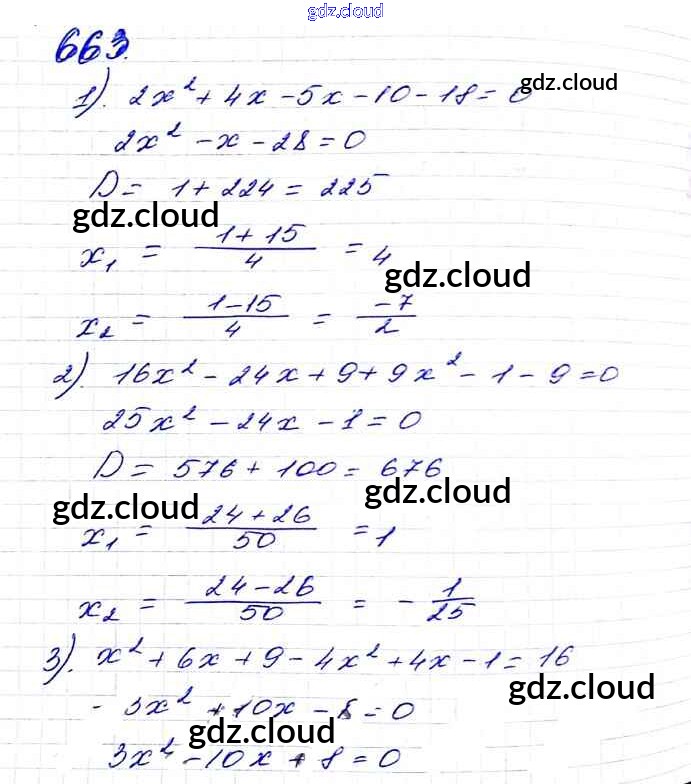 gdz.cloud
663.
1). 2x² + 4x - 5x - 10 - 18 = 0
gdz.cloud
2x² - x - 28 = 0
D = 1 + 224 = 225
gdz.cloud
x₁ = (1 + 15)/4 = 4
gdz.cloud
x₂ = (1 - 15)/4 = -7/2
2). 16x² - 24x + 9 + 9x² - 1 - 9 = 0
25x² - 24x - 1 = 0
D = 576 + 100 = 676
gdz.cloud
gdz.cloud
x₁ = (24 + 26)/50 = 1
x₂ = (24 - 26)/50 = - 1/25
3). x² + 6x + 9 - 4x² + 4x - 1 = 16
gdz.cloud
- 3x² + 10x - 8 = 0
gdz.cloud
3x² - 10x + 8 = 0